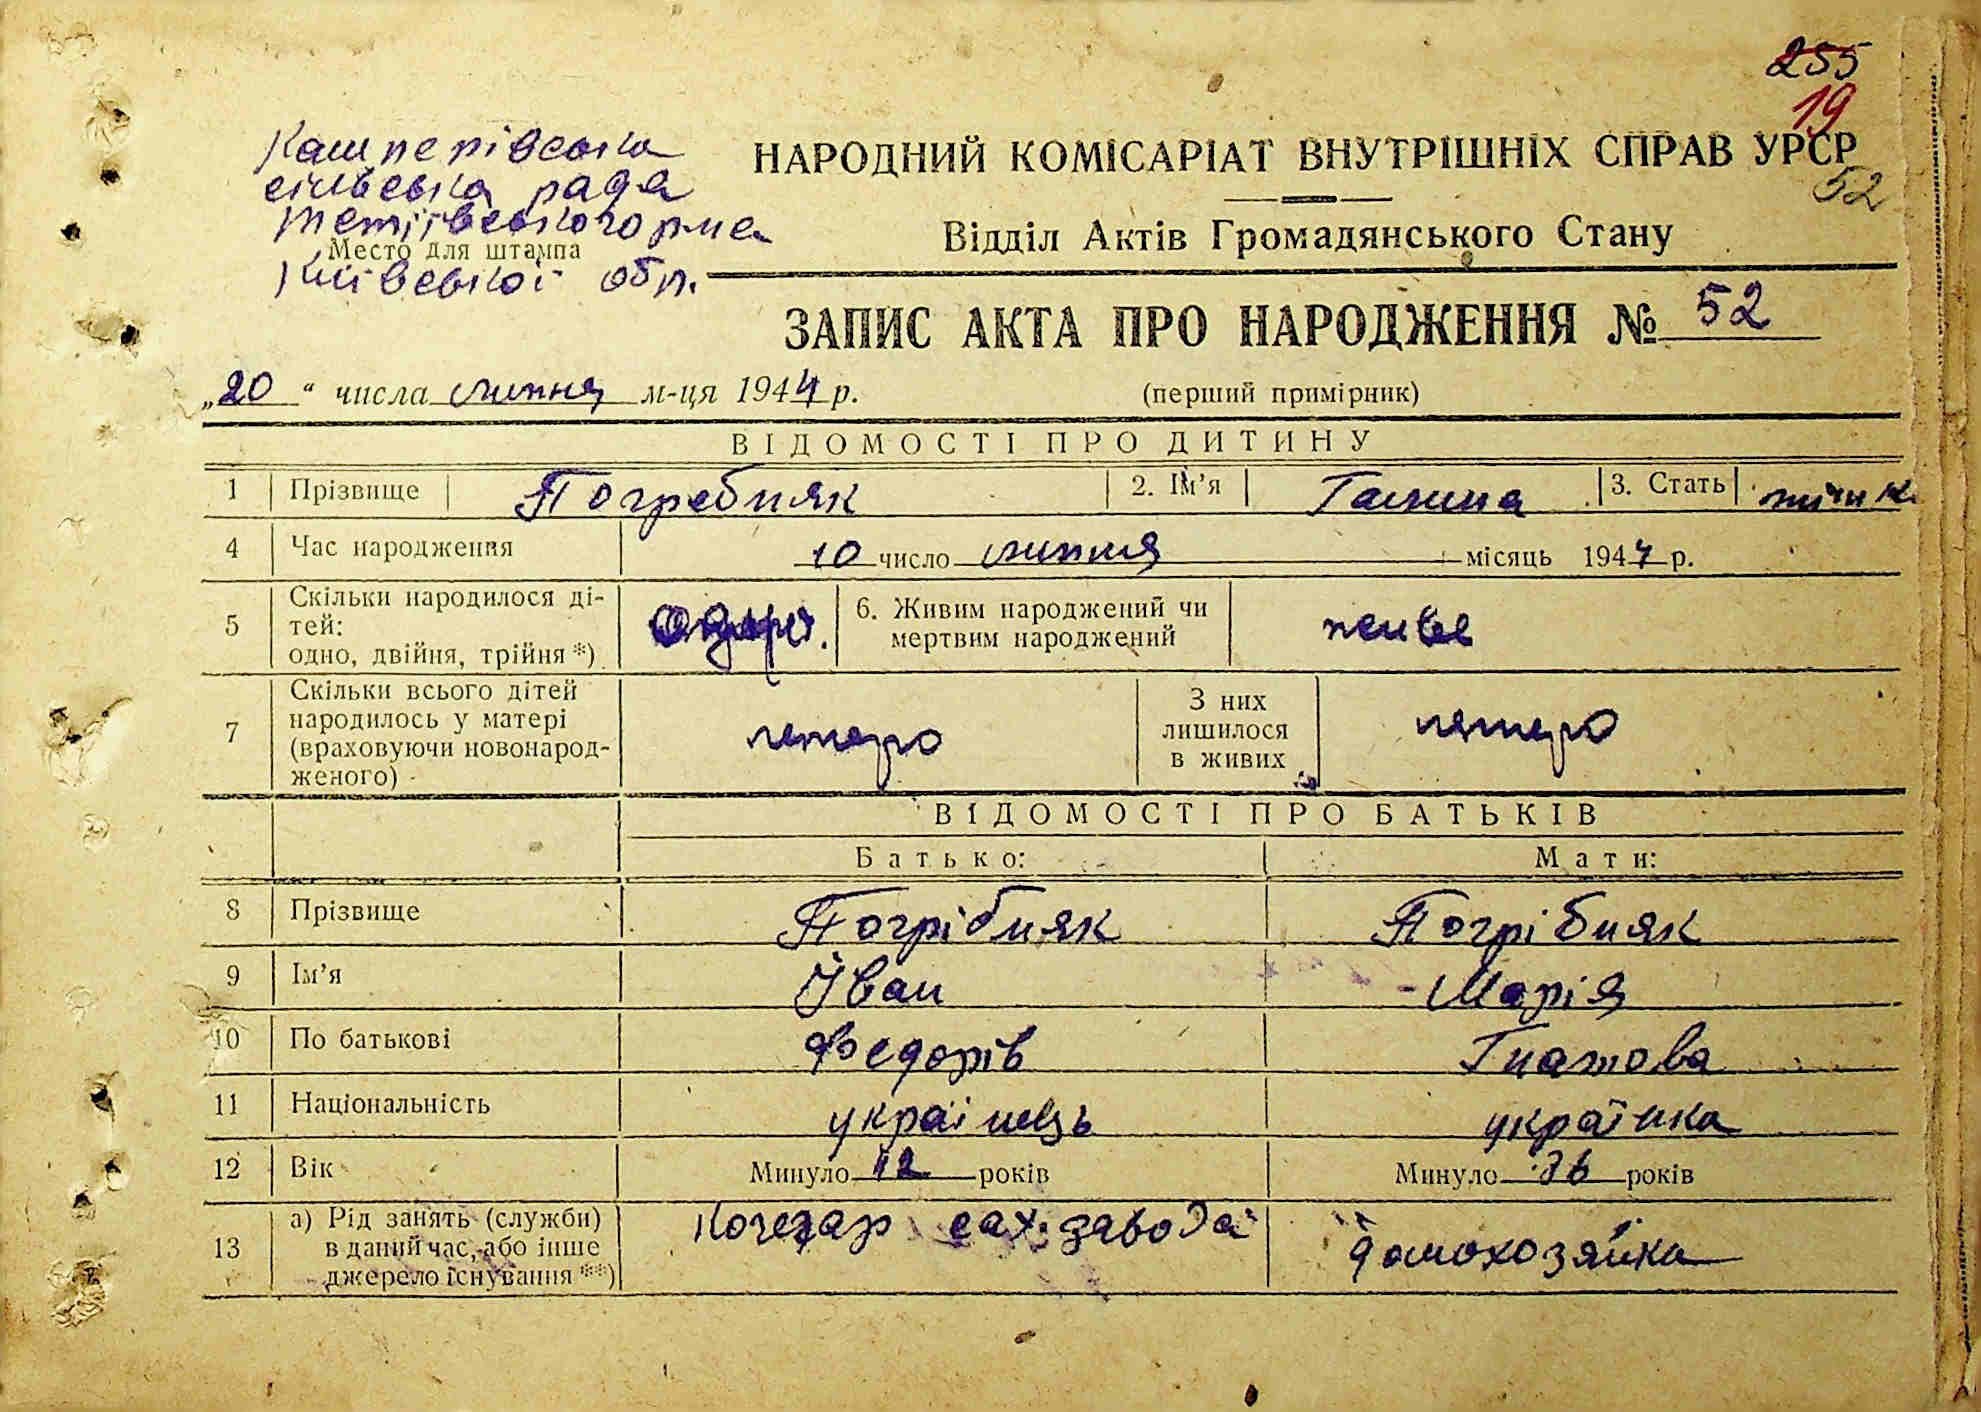 255
19
52
Кашперівська
сільська рада
Тетіївського р-не
Київської обл.
Место для штампа
НАРОДНИЙ КОМІСАРІАТ ВНУТРІШНІХ СПРАВ УРСР
Відділ Актів Громадянського Стану
ЗАПИС АКТА ПРО НАРОДЖЕННЯ № 52
„20“ числа липня м-ця 1944 р. (перший примірник)
ВІДОМОСТІ ПРО ДИТИНУ
1 Прізвище Погребняк 2. Ім’я Галина 3. Стать жінк.
4 Час народження 10 число липня місяць 1944 р.
5 Скільки народилося ді-
тей:
одно, двійня, трійня *)
одно.
6. Живим народжений чи
мертвим народжений
живе
7 Скільки всього дітей
народилось у матері
(враховуючи новонарод-
женого)
пятеро
З них
лишилося
в живих
пятеро
ВІДОМОСТІ ПРО БАТЬКІВ
Батько: Мати:
8 Прізвище Погрібняк Погрібняк
9 Ім’я Іван Марія
10 По батькові Федорів Гнатова
11 Національність українець українка
12 Вік Минуло 42 років Минуло 36 років
13 а) Рід занять (служби)
в даний час, або інше
джерело існування **)
Кочегар сах. завода
домохозяйка